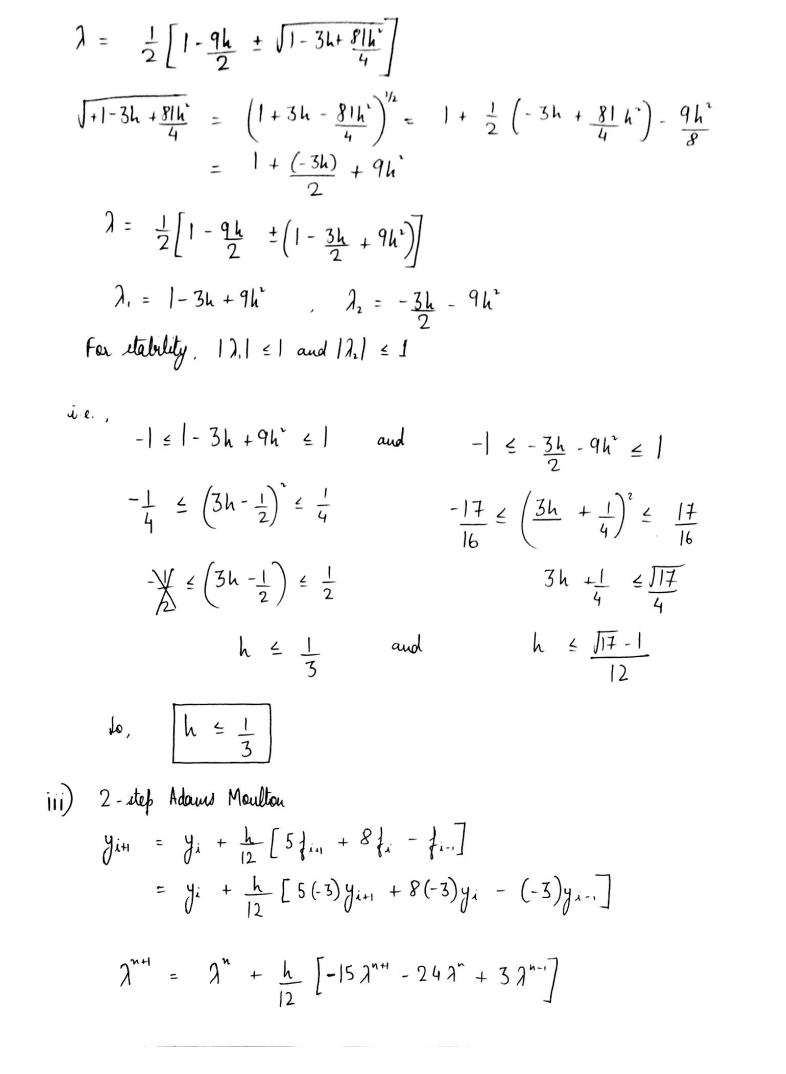 λ = 1/2 [1 - 9h/2 ± √(1 - 3h + 81h²/4)]
√(+1 - 3h + 81h²/4) = (1 + 3h - 81h²/4)^1/2 = 1 + 1/2 (-3h + 81/4 h²) - 9h²/8
= 1 + (-3h)/2 + 9h²
λ = 1/2 [1 - 9h/2 ± (1 - 3h/2 + 9h²)]
λ₁ = 1 - 3h + 9h² , λ₂ = -3h/2 - 9h²
For stability, |λ₁| ≤ 1 and |λ₂| ≤ 1
i.e.,
-1 ≤ 1 - 3h + 9h² ≤ 1 and -1 ≤ -3h/2 - 9h² ≤ 1
-1/4 ≤ (3h - 1/2)² ≤ 1/4 -17/16 ≤ (3h + 1/4)² ≤ 17/16
≤ (3h - 1/2) ≤ 1/2 3h + 1/4 ≤ √17/4
h ≤ 1/3 and h ≤ (√17 - 1)/12
So, h ≤ 1/3
iii) 2-step Adams Moulton
yᵢ₊₁ = yᵢ + h/12 [5fᵢ₊₁ + 8fᵢ - fᵢ₋₁]
= yᵢ + h/12 [5(-3)yᵢ₊₁ + 8(-3)yᵢ - (-3)yᵢ₋₁]
λⁿ⁺¹ = λⁿ + h/12 [-15λⁿ⁺¹ - 24λⁿ + 3λⁿ⁻¹]